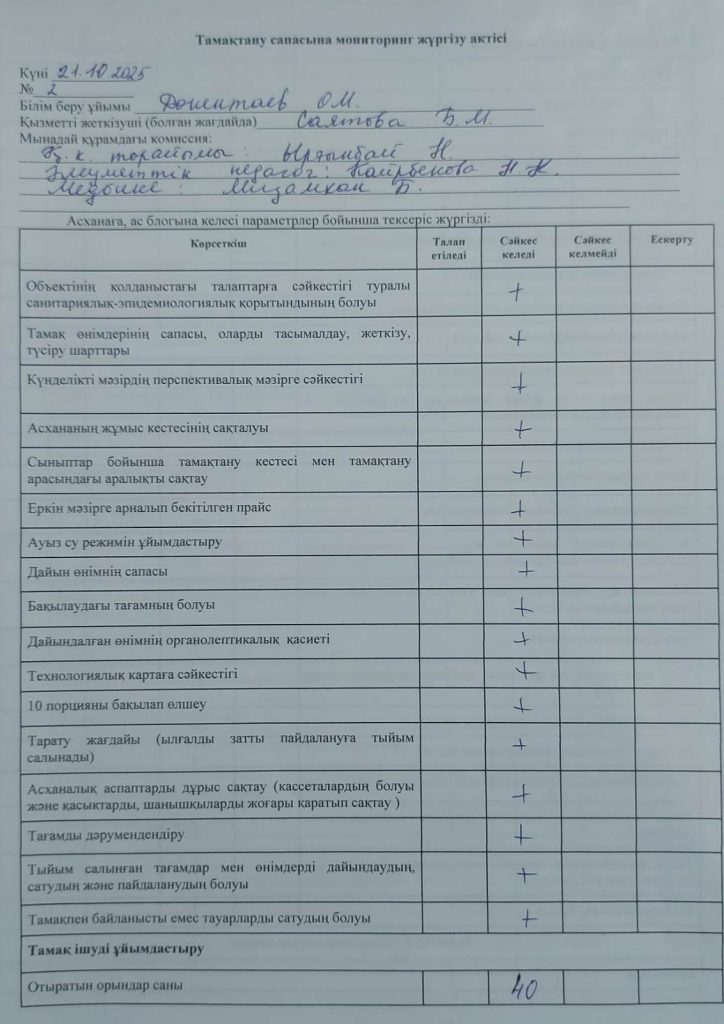 Тамақтану сапасына мониторинг жүргізу актісі
Күні 21.10.2025
№ 2
Білім беру ұйымы Донентаев О.М.
Қызметті жеткізуші (болған жағдайда) Саятова Б.М.
Мынадай құрамдағы комиссия:
Қ.к. торайымы: Ырғынбай Н.
Әлеуметтік педагог: Каирбекова Н.К.
Медбике: Мизамхан Б.
Асханаға, ас блогына келесі параметрлер бойынша тексеріс жүргізді:
Көрсеткіш Талап Сәйкес Сәйкес Ескерту
етіледі келеді келмейді
Объектінің қолданыстағы талаптарға сәйкестігі туралы
санитариялық-эпидемиологиялық қорытындының болуы +
Тамақ өнімдерінің сапасы, оларды тасымалдау, жеткізу,
түсіру шарттары +
Күнделікті мәзірдің перспективалық мәзірге сәйкестігі +
Асхананың жұмыс кестесінің сақталуы +
Сыныптар бойынша тамақтану кестесі мен тамақтану
арасындағы аралықты сақтау +
Еркін мәзірге арналып бекітілген прайс +
Ауыз су режимін ұйымдастыру +
Дайын өнімнің сапасы +
Бақылаудағы тағамның болуы +
Дайындалған өнімнің органолептикалық қасиеті +
Технологиялық картаға сәйкестігі +
10 порцияны бақылап өлшеу +
Тарату жағдайы (ылғалды затты пайдалануға тыйым
салынады) +
Асханалық аспаптарды дұрыс сақтау (кассеталардың болуы
және қасықтарды, шанышқыларды жоғары қаратып сақтау ) +
Тағамды дәрумендендіру +
Тыйым салынған тағамдар мен өнімдерді дайындаудың,
сатудың және пайдаланудың болуы +
Тамақпен байланысты емес тауарларды сатудың болуы +
Тамақ ішуді ұйымдастыру
Отыратын орындар саны 40